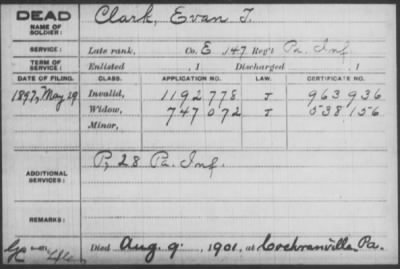 DEAD Clark, Evan T.
NAME OF SOLDIER:
SERVICE: Late rank, Co. E 147 Reg't Pa. Inf.
TERM OF SERVICE: Enlisted , 1 Discharged , 1
DATE OF FILING. CLASS. APPLICATION NO. LAW. CERTIFICATE NO.
1897, May 29 Invalid, 1192778 J 963936
Widow, 747072 J 538156
Minor,
P, 28 Pa. Inf.
ADDITIONAL SERVICES:
REMARKS:
Died Aug. 9, 1901, at Cochranville Pa.